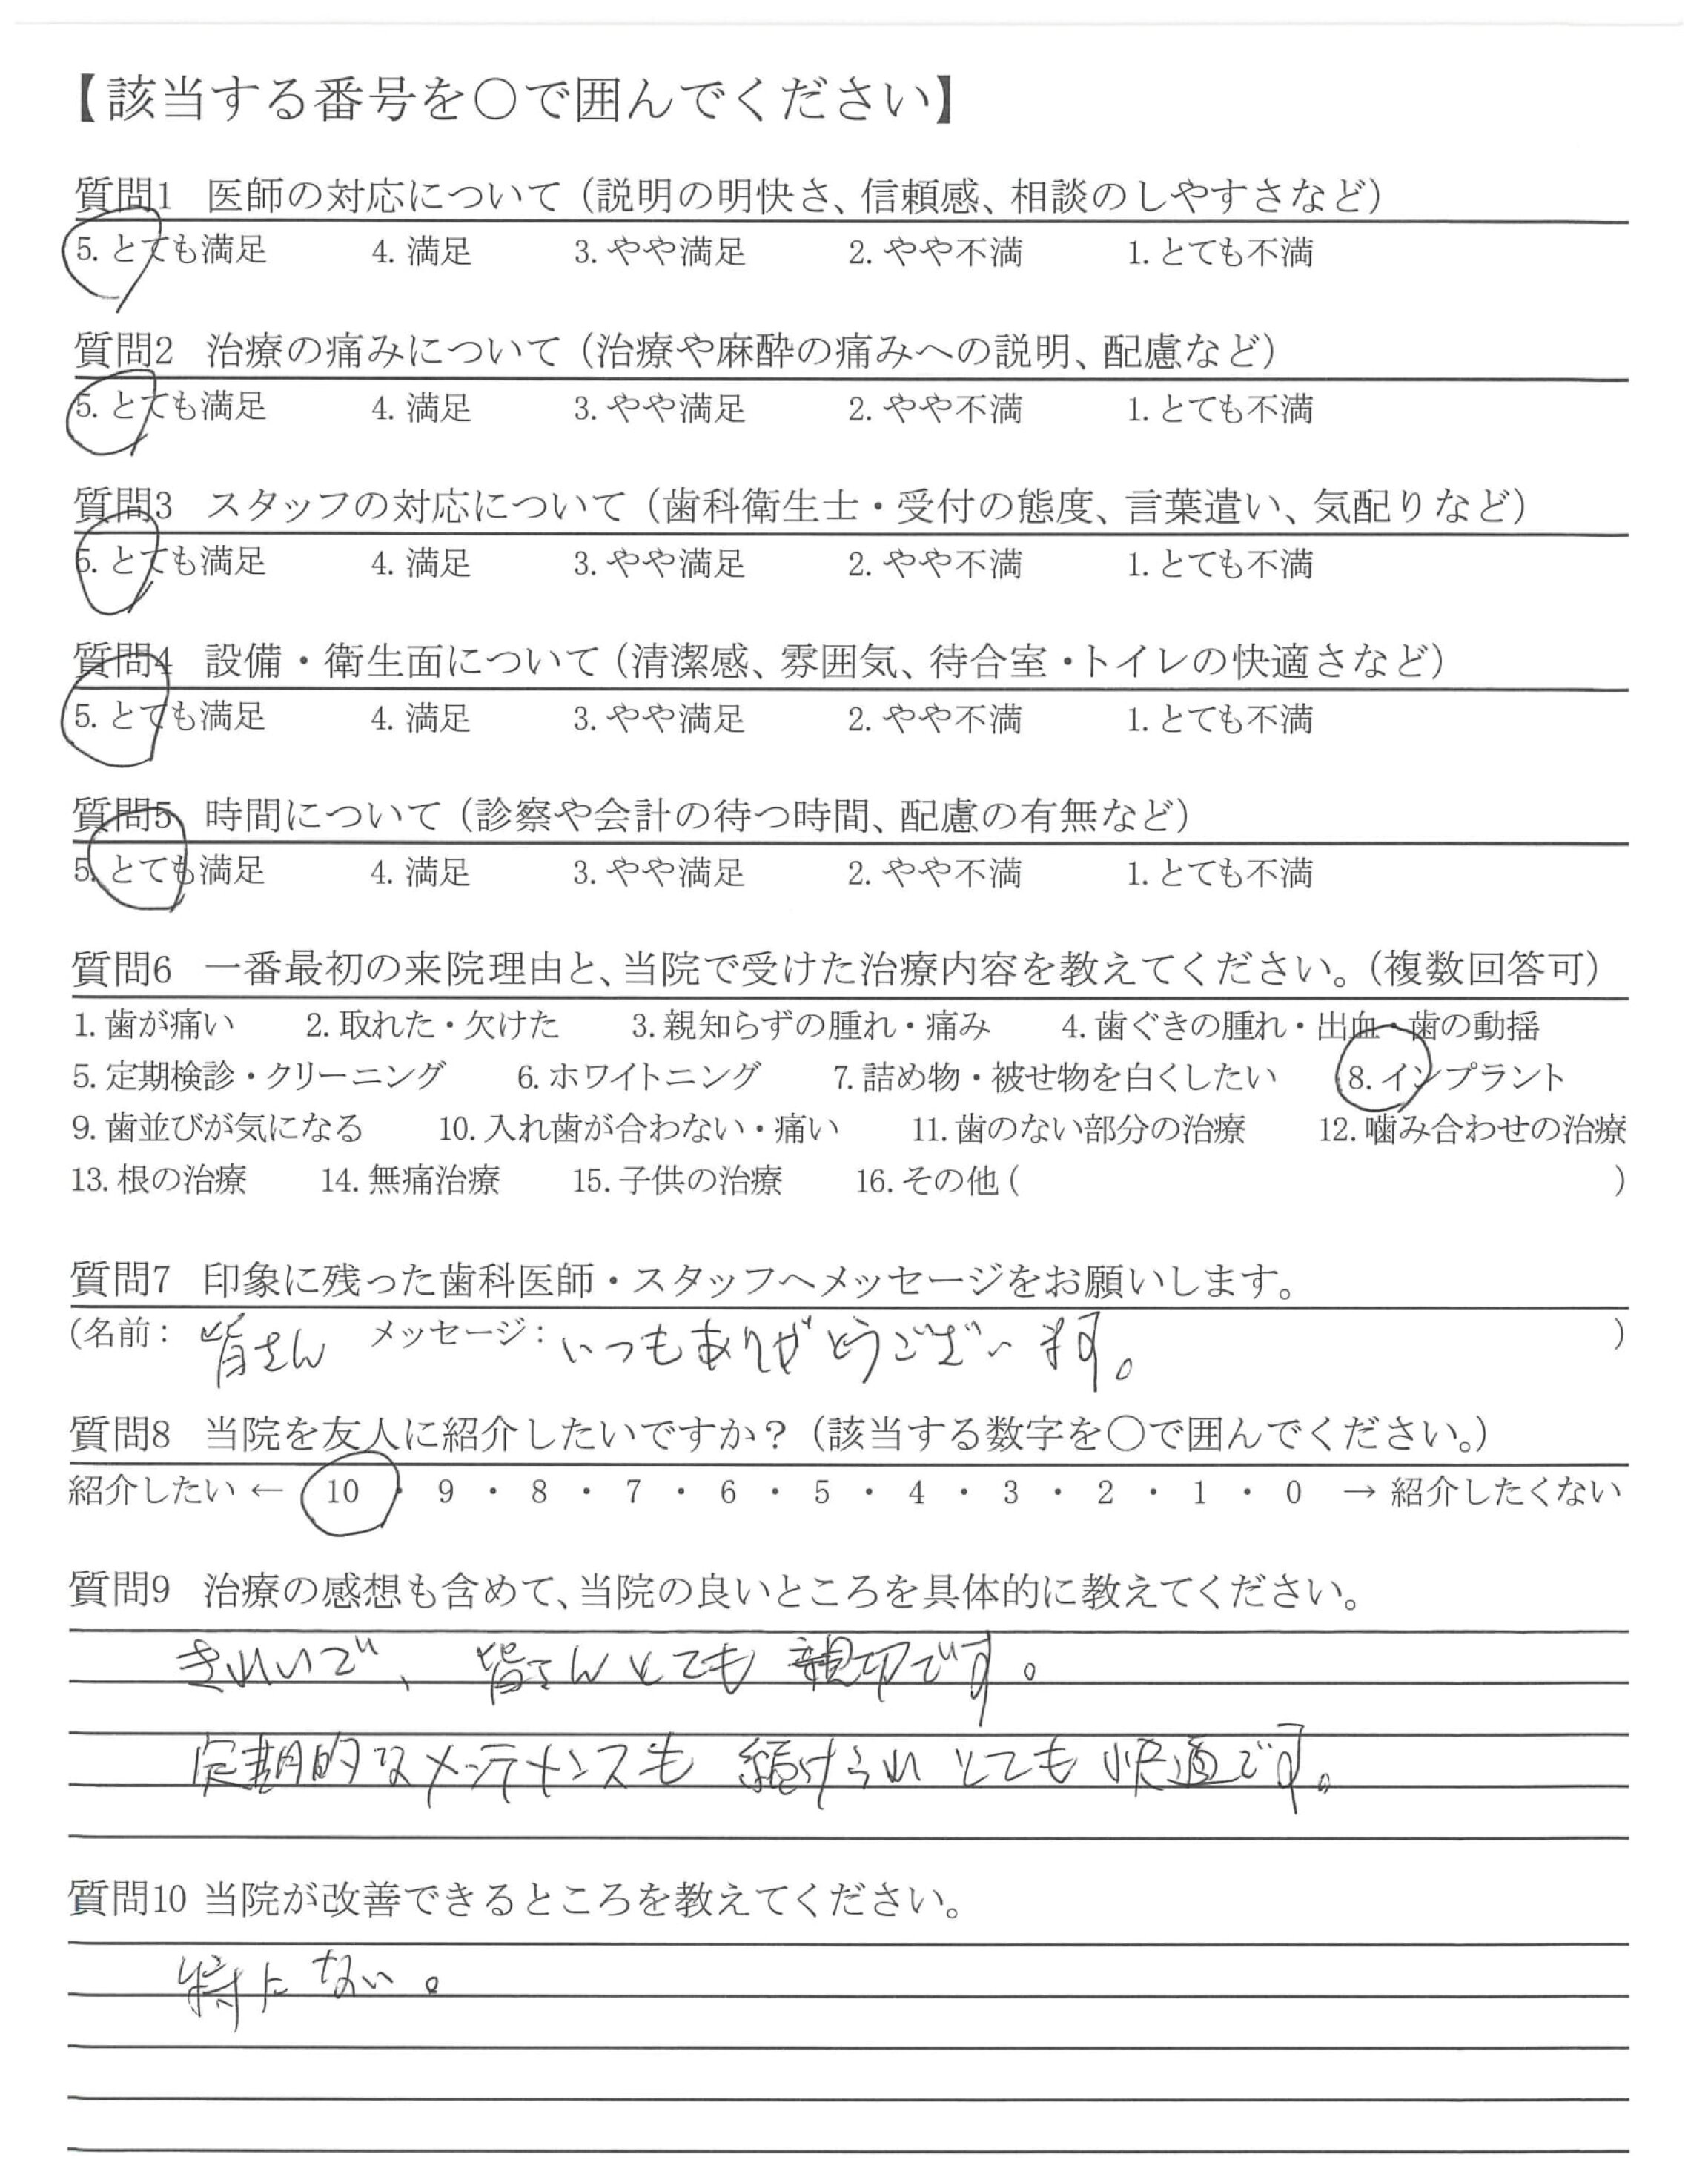 【該当する番号を○で囲んでください】
質問1 医師の対応について（説明の明快さ、信頼感、相談のしやすさなど）
5. とても満足 4. 満足 3. やや満足 2. やや不満 1. とても不満
質問2 治療の痛みについて（治療や麻酔の痛みへの説明、配慮など）
5. とても満足 4. 満足 3. やや満足 2. やや不満 1. とても不満
質問3 スタッフの対応について（歯科衛生士・受付の態度、言葉遣い、気配りなど）
5. とても満足 4. 満足 3. やや満足 2. やや不満 1. とても不満
質問4 設備・衛生面について（清潔感、雰囲気、待合室・トイレの快適さなど）
5. とても満足 4. 満足 3. やや満足 2. やや不満 1. とても不満
質問5 時間について（診察や会計の待つ時間、配慮の有無など）
5. とても満足 4. 満足 3. やや満足 2. やや不満 1. とても不満
質問6 一番最初の来院理由と、当院で受けた治療内容を教えてください。（複数回答可）
1. 歯が痛い 2. 取れた・欠けた 3. 親知らずの腫れ・痛み 4. 歯ぐきの腫れ・出血・歯の動揺
5. 定期検診・クリーニング 6. ホワイトニング 7. 詰め物・被せ物を白くしたい 8. インプラント
9. 歯並びが気になる 10. 入れ歯が合わない・痛い 11. 歯のない部分の治療 12. 噛み合わせの治療
13. 根の治療 14. 無痛治療 15. 子供の治療 16. その他 ( )
質問7 印象に残った歯科医師・スタッフへメッセージをお願いします。
(名前： 皆さん メッセージ： いつもありがとうございます。 )
質問8 当院を友人に紹介したいですか？（該当する数字を○で囲んでください。）
紹介したい ← 10 ・ 9 ・ 8 ・ 7 ・ 6 ・ 5 ・ 4 ・ 3 ・ 2 ・ 1 ・ 0 → 紹介したくない
質問9 治療の感想も含めて、当院の良いところを具体的に教えてください。
きれいで、皆さんとても親切です。
定期的なメンテナンスも続けられとても快適です。
質問10 当院が改善できるところを教えてください。
特にない。